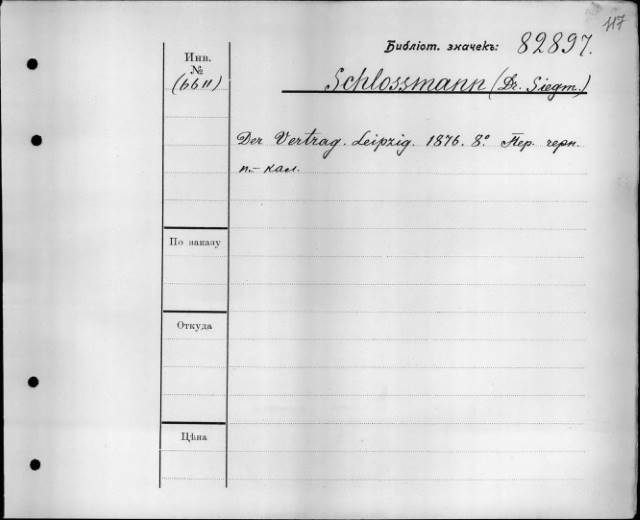 117
Библіот. значекъ: 82897.
Инв.
№
(6611)
Schlossmann (Dr. Siegm.)
Der Vertrag. Leipzig. 1876. 8° Пер. черн.
п.-кал.
По заказу
Откуда
Цѣна